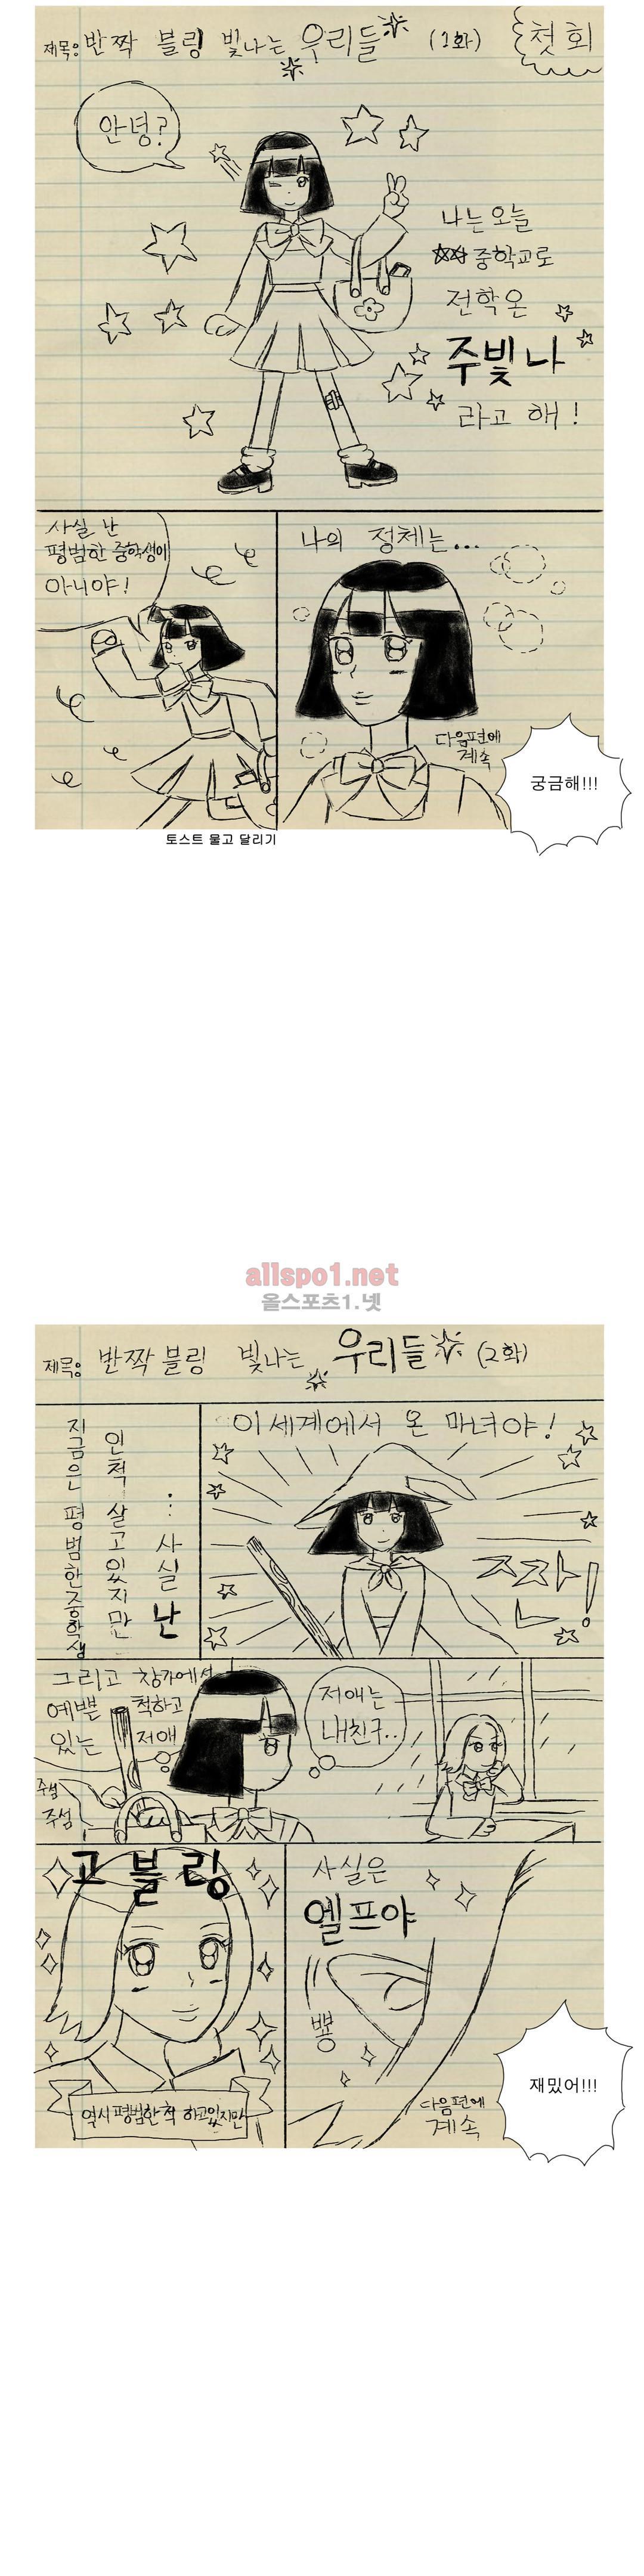 제목: 반짝 블링 빛나는 우리들 (1화)
첫회
안녕?
나는 오늘
☆☆ 중학교로
전학 온
주빛나
라고 해!
사실 난
평범한 중학생이
아니야!
토스트 물고 달리기
나의 정체는...
다음편에
계속
궁금해!!!
allspo1.net
올스포츠1.넷
제목: 반짝 블링 빛나는 우리들 (2화)
... 사실 난
인척 살고있지만
지금은 평범한 중학생
이세계에서 온 마녀야!
짜잔!
그리고 창가에서
예쁜 척하고
있는 저애
주섬
주섬
저애는
내친구..
고블링
역시 평범한 척 하고있지만
사실은
엘프야
뾩
다음편에
계속
재밌어!!!